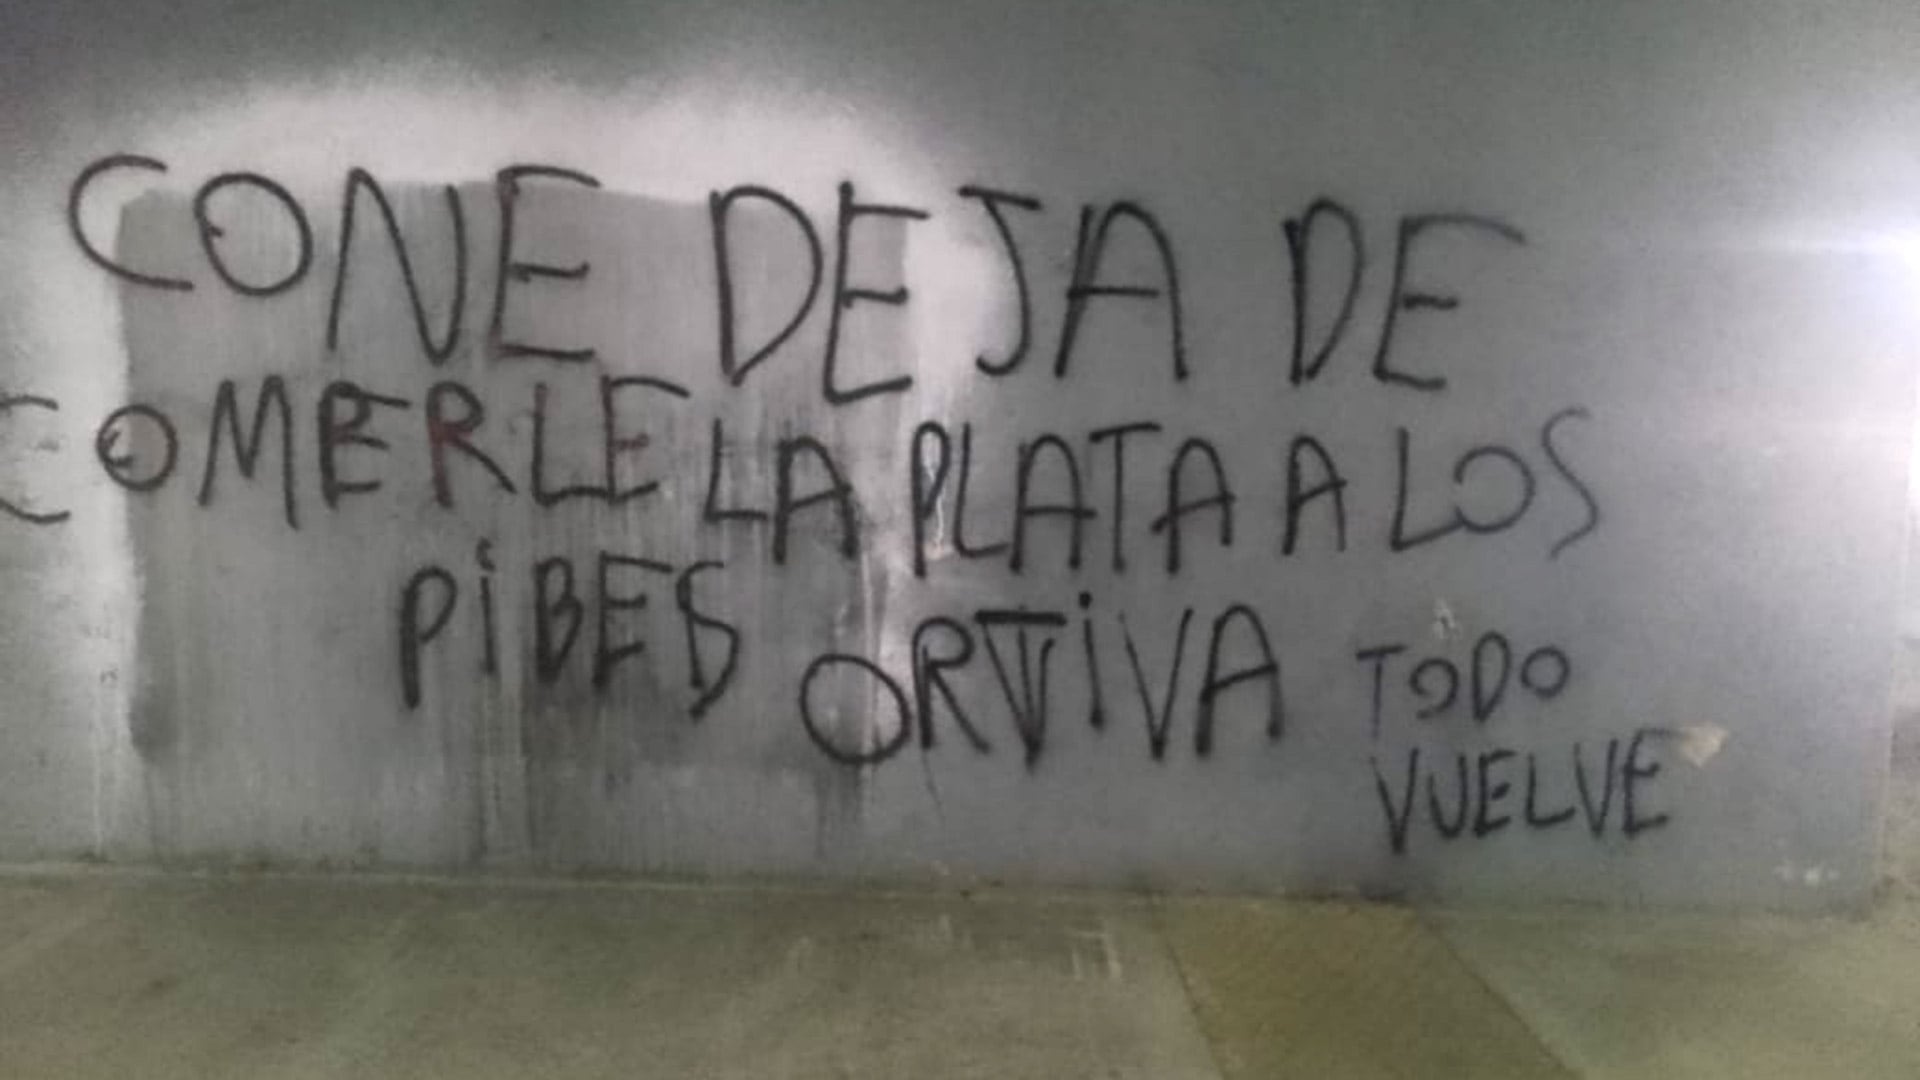 CONE DEJA DE
COMERLE LA PLATA A LOS
PiBES ORTiVA
TODO
VUELVE